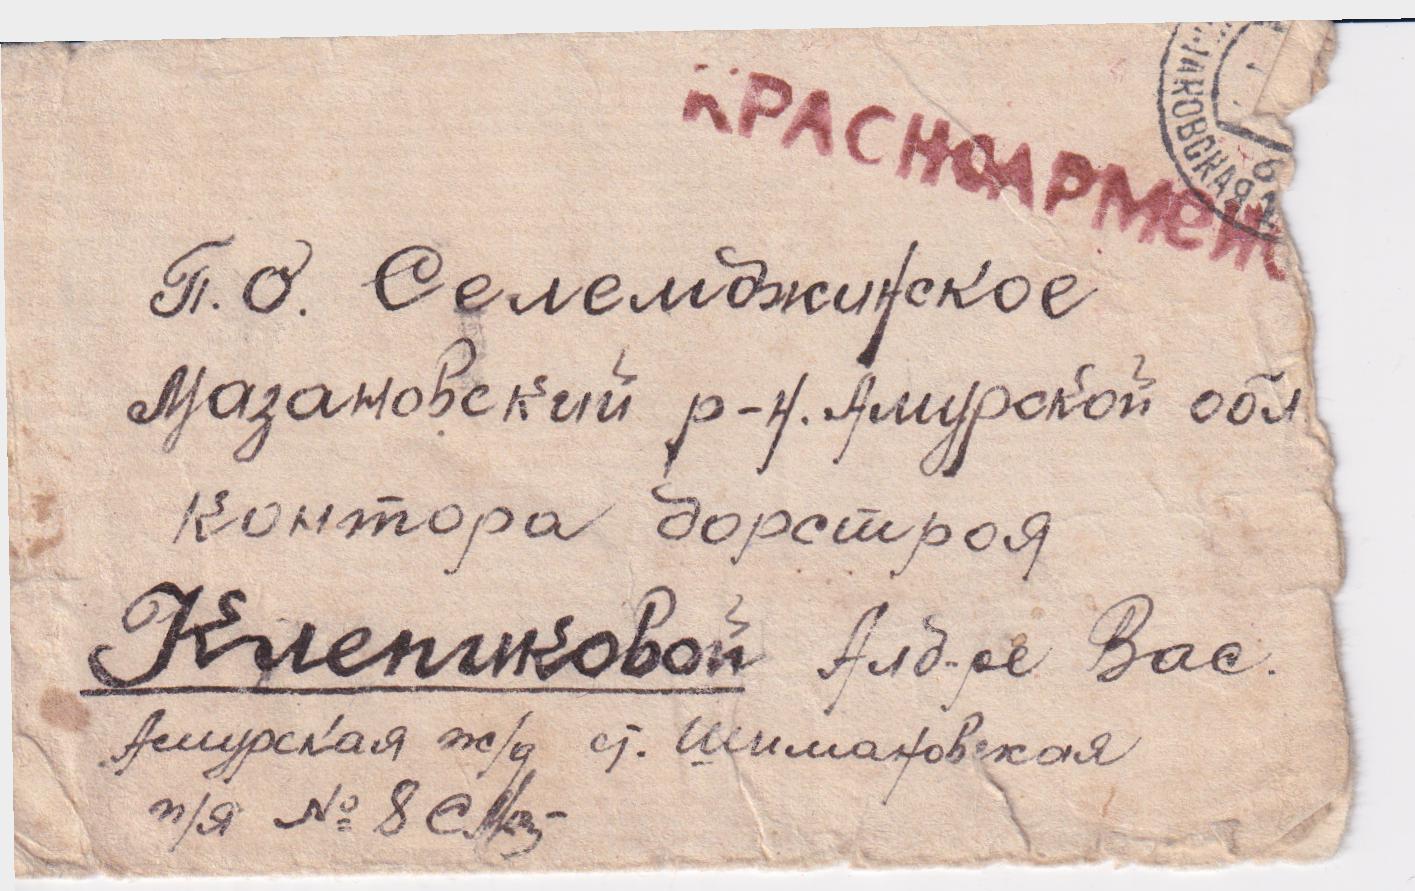 КРАСНОАРМЕЙС
П.О. Селемджинское
Мазановский р-н. Амурской обл
контора дорстроя
Клепиковой Алд-ре Вас.
Амурская ж/д ст. Шимановская
п/я № 8